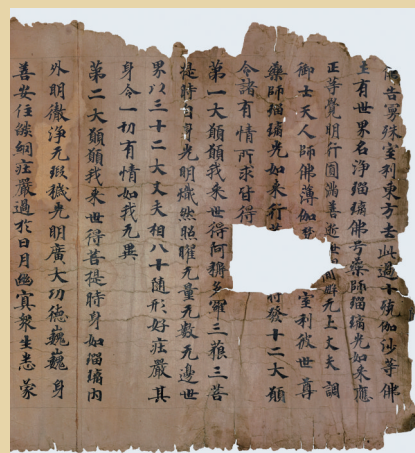 告曼殊室利東方去此過十殑伽沙等佛
土有世界名淨瑠璃佛号藥師瑠璃光如来應
正等覺明行圓滿善逝世間解无上丈夫調
御士天人師佛薄伽室利彼世尊
藥師瑠璃光如来行時發十二大願
令諸有情所求皆得
第一大願願我来世得阿耨多羅三藐三菩
提時自身光明熾然照曜无量无數无邊世
界以三十二大丈夫相八十隨形好莊嚴其
身令一切有情如我无異
第二大願願我来世得菩提時身如瑠璃内
外明徹淨无瑕穢光明廣大功德巍巍身
善安住焰網莊嚴過於日月幽冥衆生悉蒙